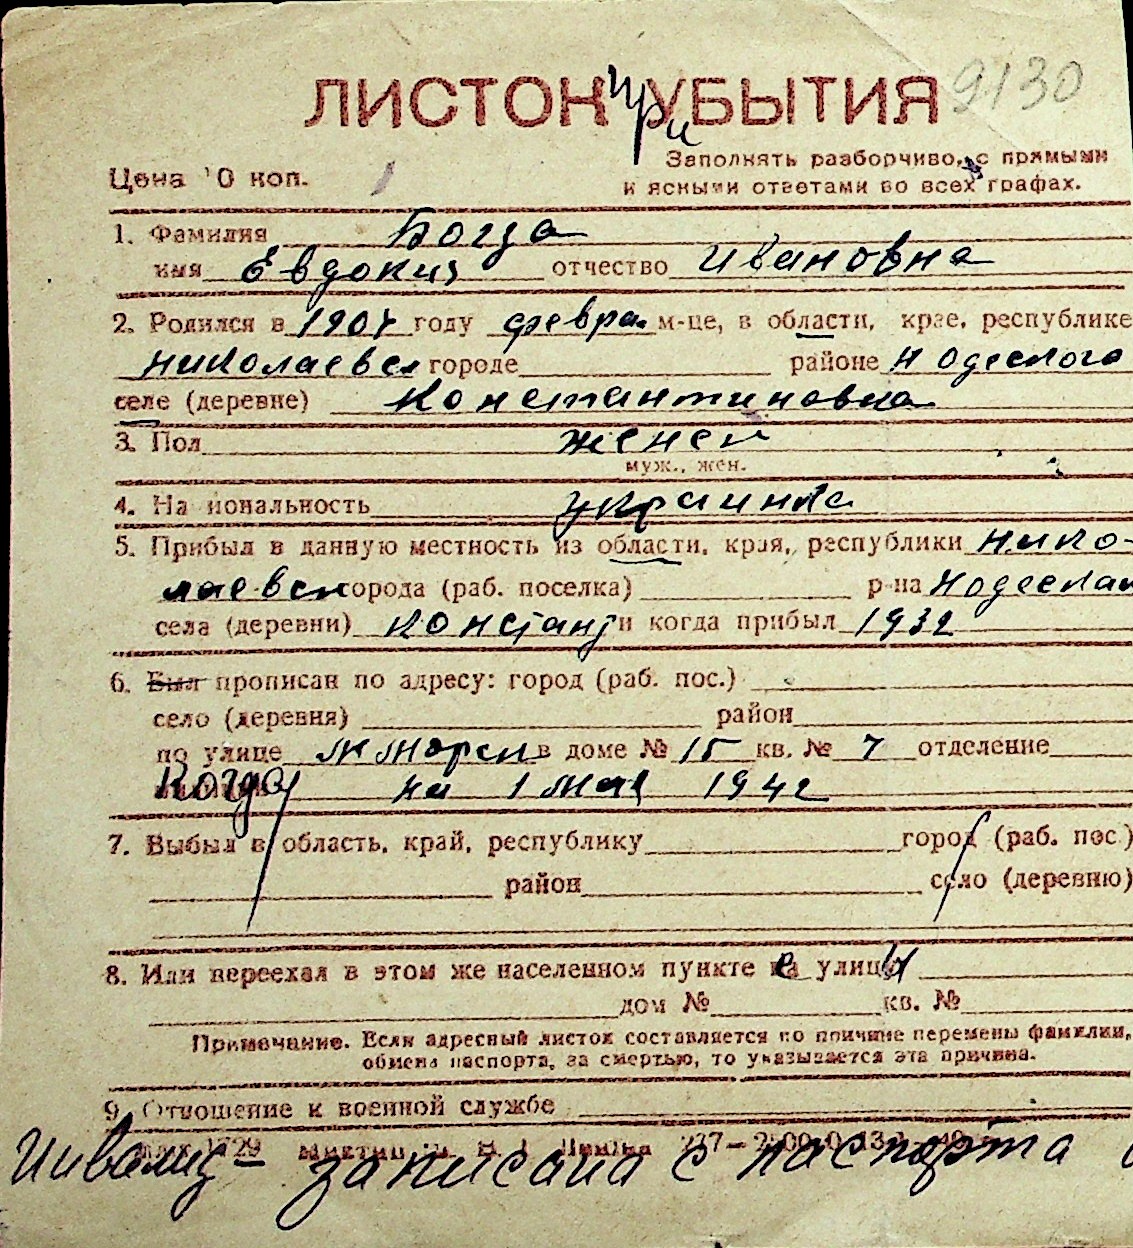 ЛИСТОК при УБЫТИЯ 9130
Цена 10 коп.
Заполнять разборчиво, с прямыми
и ясными ответами во всех графах.
1. Фамилия Богза
имя Евдокия отчество Ивановна
2. Родился в 1907 году февра. м-це, в области, крае, республике
Николаевск городе районе Н Одесского
селе (деревне) Константиновка
3. Пол женск
муж., жен.
4. Национальность украинка
5. Прибыл в данную местность из области, края, республики Нико-
лаевск города (раб. поселка) р-на Н Одесска
села (деревни) Констант и когда прибыл 1932
6. Был прописан по адресу: город (раб. пос.)
село (деревня) район
по улице в доме № 15 кв. № 7 отделение
Когда на 1 мая 1942
7. Выбыл в область, край, республику город (раб. пос.)
район село (деревню)
8. Или переехал в этом же населенном пункте с улицы
дом № кв. №
Примечание. Если адресный листок составляется по причине перемены фамилии,
обмена паспорта, за смертью, то указывается эта причина.
9. Отношение к военной службе
Инвалид – записана с паспорта